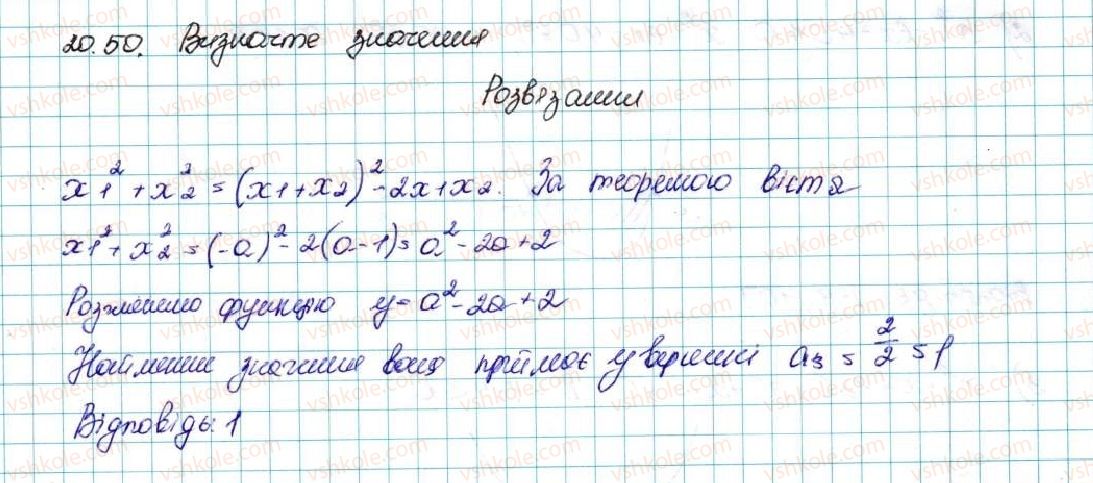 20.50. Визначте значення
Розв'язання
x1² + x2² = (x1+x2)² - 2x1x2. За теоремою Вієта
x1² + x2² = (-a)² - 2(a-1) = a² - 2a + 2
Розглянемо функцію y = a² - 2a + 2
Найменше значення вона приймає у вершині aв = 2/2 = 1
Відповідь: 1